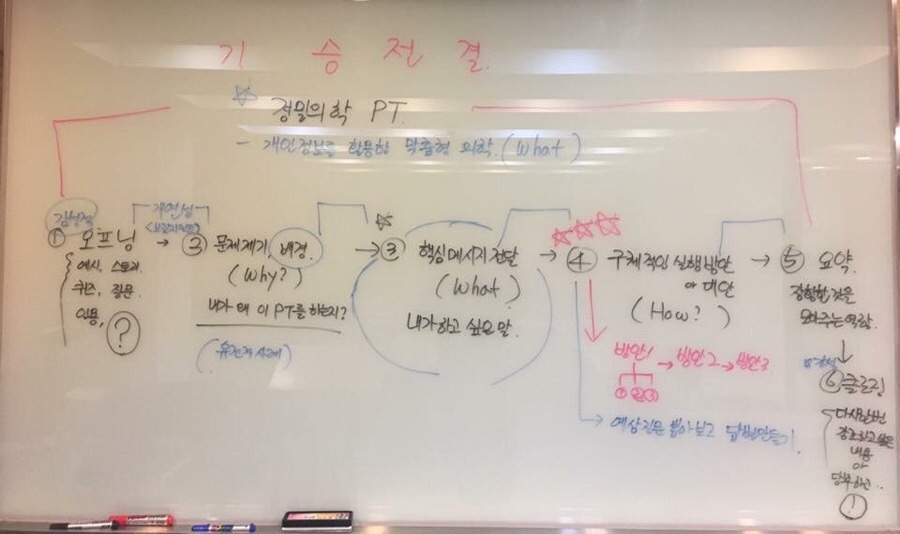 기 승 전 결.
☆ 정밀의학 PT.
- 개인정보를 활용한 맞춤형 의학. (What)
감성적
① 오프닝
예시, 스토리.
퀴즈, 질문.
인용,
?
개연성
→ ② 문제제기, 배경.
(Why?)
내가 왜 이 PT를 하는지?
☆
→ ③ 핵심메시지 전달
(What)
내가 하고 싶은 말.
☆☆☆
→ ④ 구체적인 실행방안
or 대안
(How?)
방안1 → 방안2 → 방안3.
① ② ③
→ 예상질문 뽑아보고 답변만들기.
→ ⑤ 요약.
모아주는 역할.
⑥ 클로징
다시한번
강조하고 싶은
내용
or
당부하는..
!